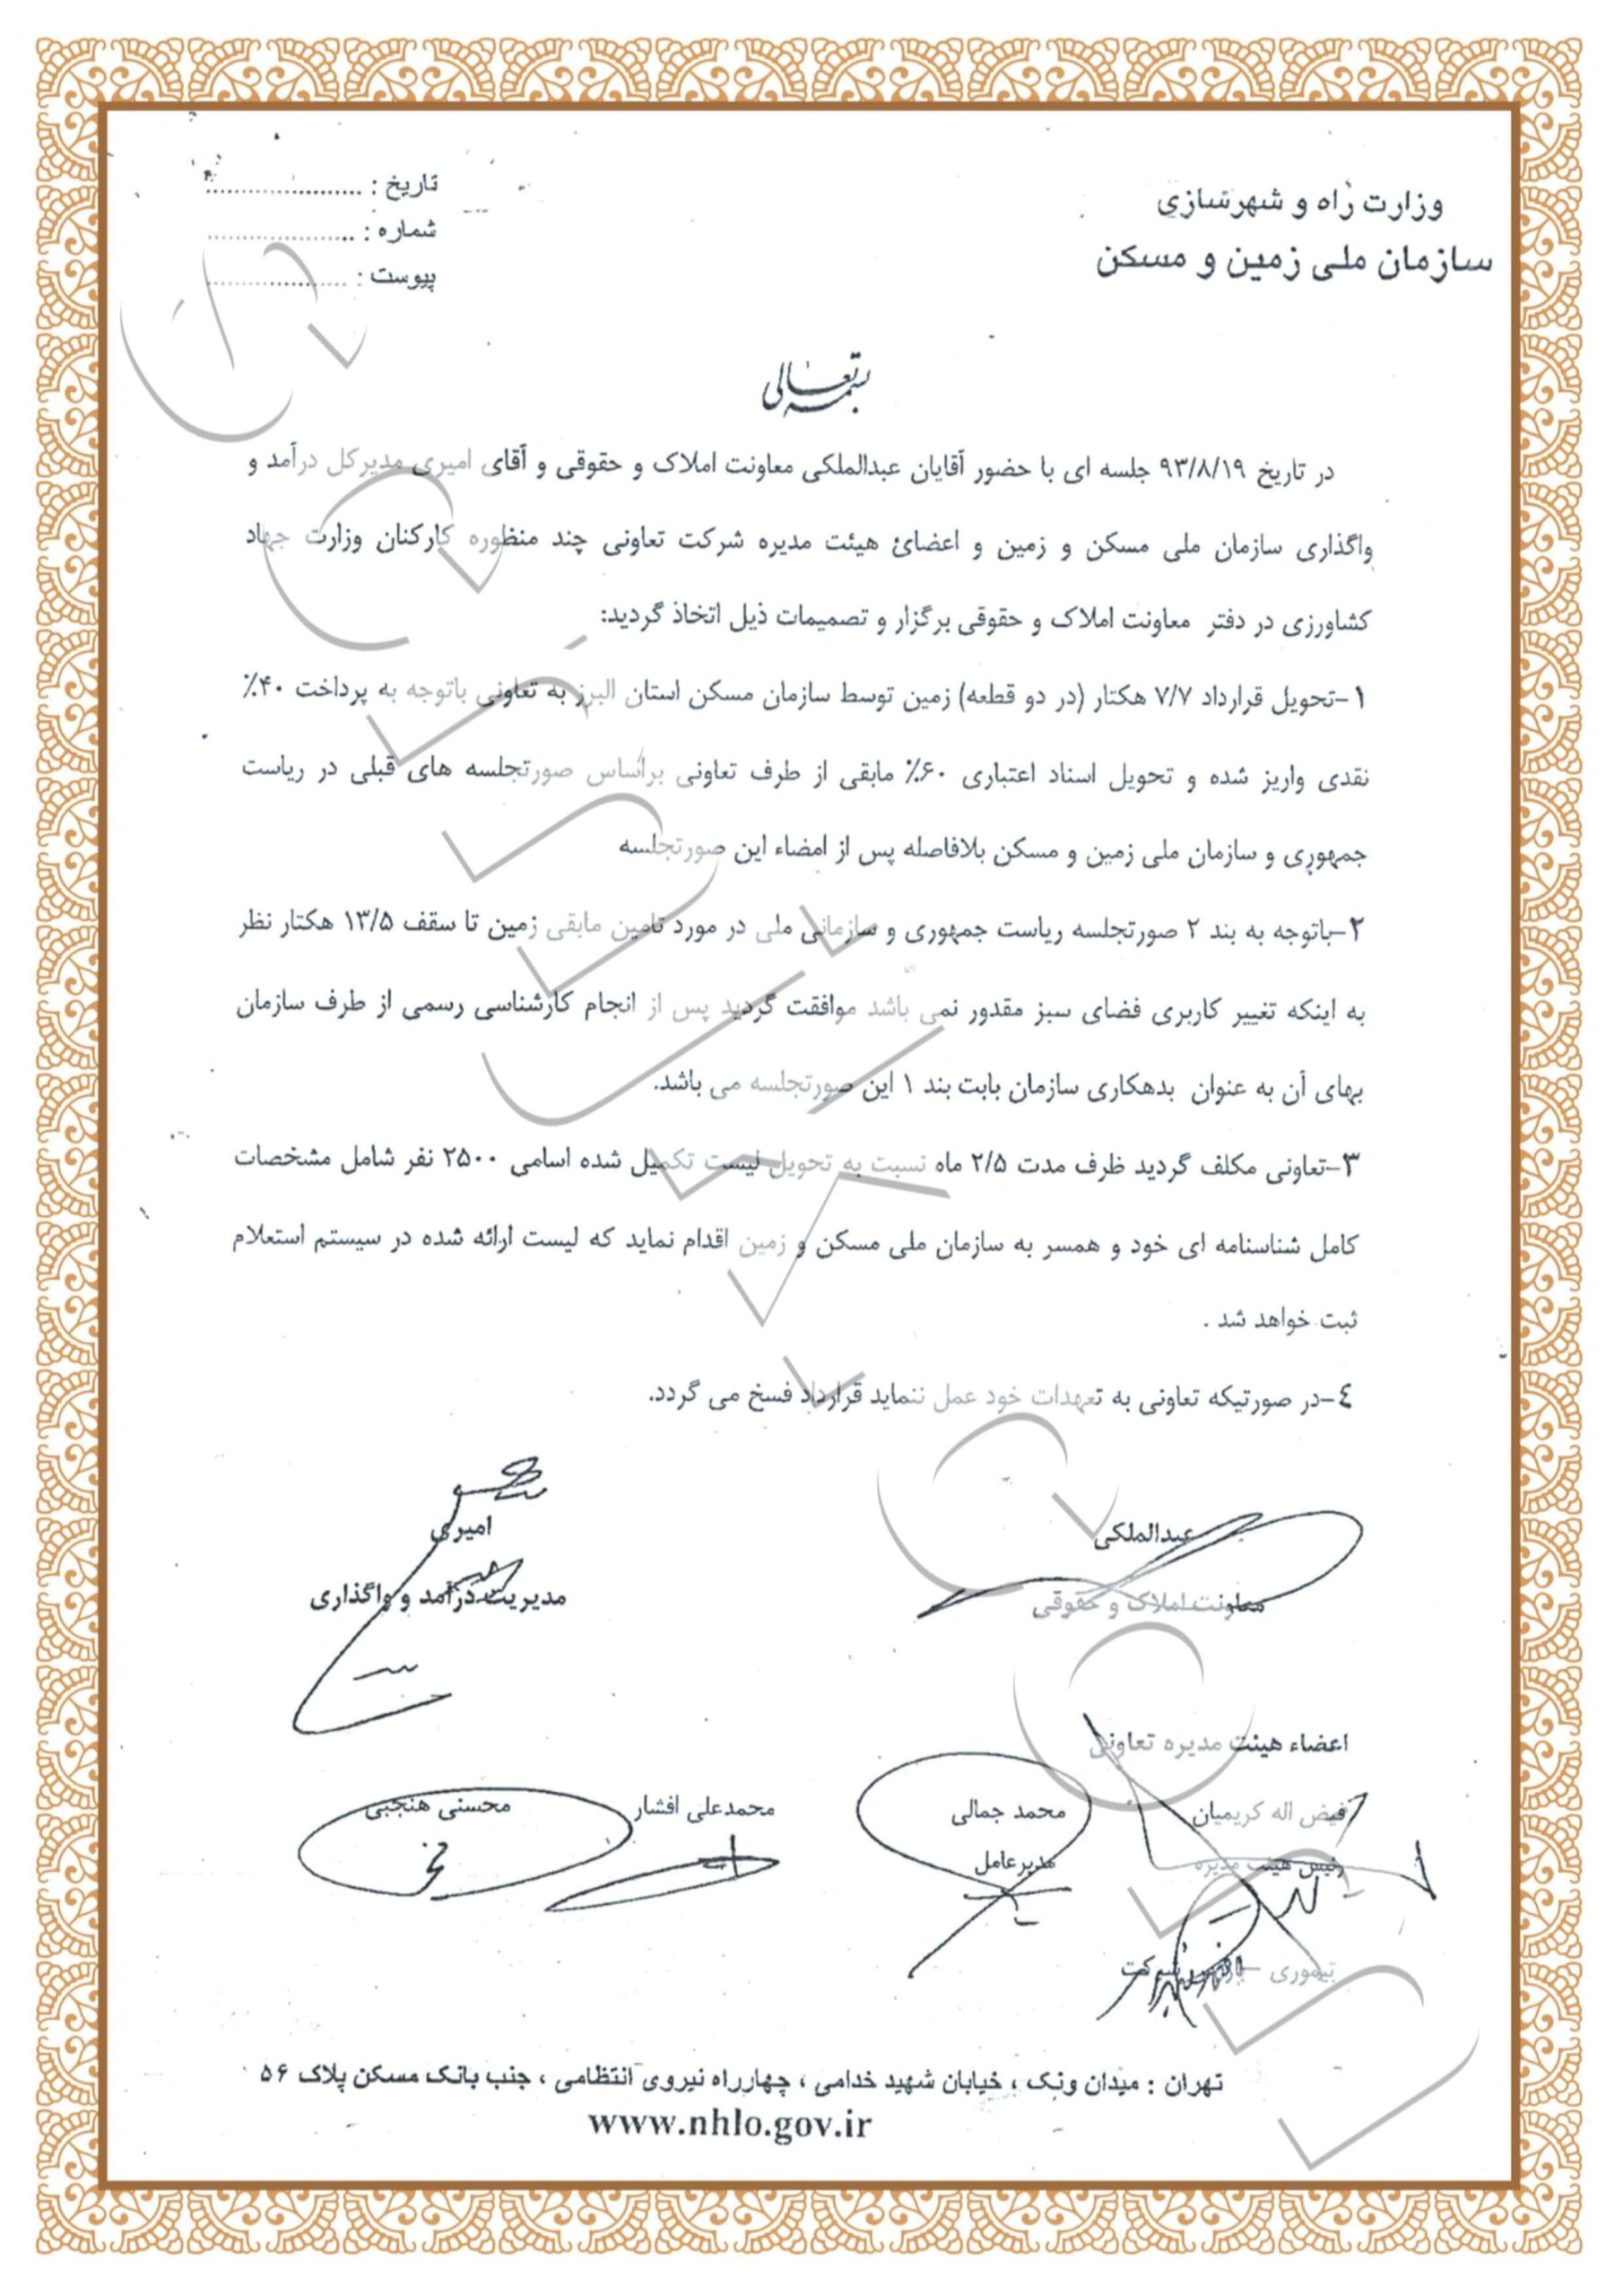 وزارت راه و شهرسازی
سازمان ملی زمین و مسکن
تاریخ : ....................
شماره : ....................
پیوست : ....................
بسمه تعالی
در تاریخ ۹۳/۸/۱۹ جلسه ای با حضور آقایان عبدالملکی معاونت املاک و حقوقی و آقای امیری مدیرکل درآمد و
واگذاری سازمان ملی مسکن و زمین و اعضائ هیئت مدیره شرکت تعاونی چند منظوره کارکنان وزارت جهاد
کشاورزی در دفتر معاونت املاک و حقوقی برگزار و تصمیمات ذیل اتخاذ گردید:
۱-تحویل قرارداد ۷/۷ هکتار (در دو قطعه) زمین توسط سازمان مسکن استان البرز به تعاونی باتوجه به پرداخت ۴۰٪
نقدی واریز شده و تحویل اسناد اعتباری ۶۰٪ مابقی از طرف تعاونی براساس صورتجلسه های قبلی در ریاست
جمهوری و سازمان ملی زمین و مسکن بلافاصله پس از امضاء این صورتجلسه
۲-باتوجه به بند ۲ صورتجلسه ریاست جمهوری و سازمانی ملی در مورد تامین مابقی زمین تا سقف ۱۳/۵ هکتار نظر
به اینکه تغییر کاربری فضای سبز مقدور نمی باشد موافقت گردید پس از انجام کارشناسی رسمی از طرف سازمان
بهای آن به عنوان بدهکاری سازمان بابت بند ۱ این صورتجلسه می باشد.
۳-تعاونی مکلف گردید ظرف مدت ۲/۵ ماه نسبت به تحویل لیست تکمیل شده اسامی ۲۵۰۰ نفر شامل مشخصات
کامل شناسنامه ای خود و همسر به سازمان ملی مسکن و زمین اقدام نماید که لیست ارائه شده در سیستم استعلام
ثبت خواهد شد .
٤-در صورتیکه تعاونی به تعهدات خود عمل ننماید قرارداد فسخ می گردد.
عبدالملکی
معاونت املاک و حقوقی
امیری
مدیریت درآمد و واگذاری
اعضاء هیئت مدیره تعاونی
فیض اله کریمیان
رئیس هیئت مدیره
محمد جمالی
مدیرعامل
محمدعلی افشار
محسنی هنجبی
تیموری – شرکت
تهران : میدان ونک ، خیابان شهید خدامی ، چهارراه نیروی انتظامی ، جنب بانک مسکن پلاک ۵۶
www.nhlo.gov.ir